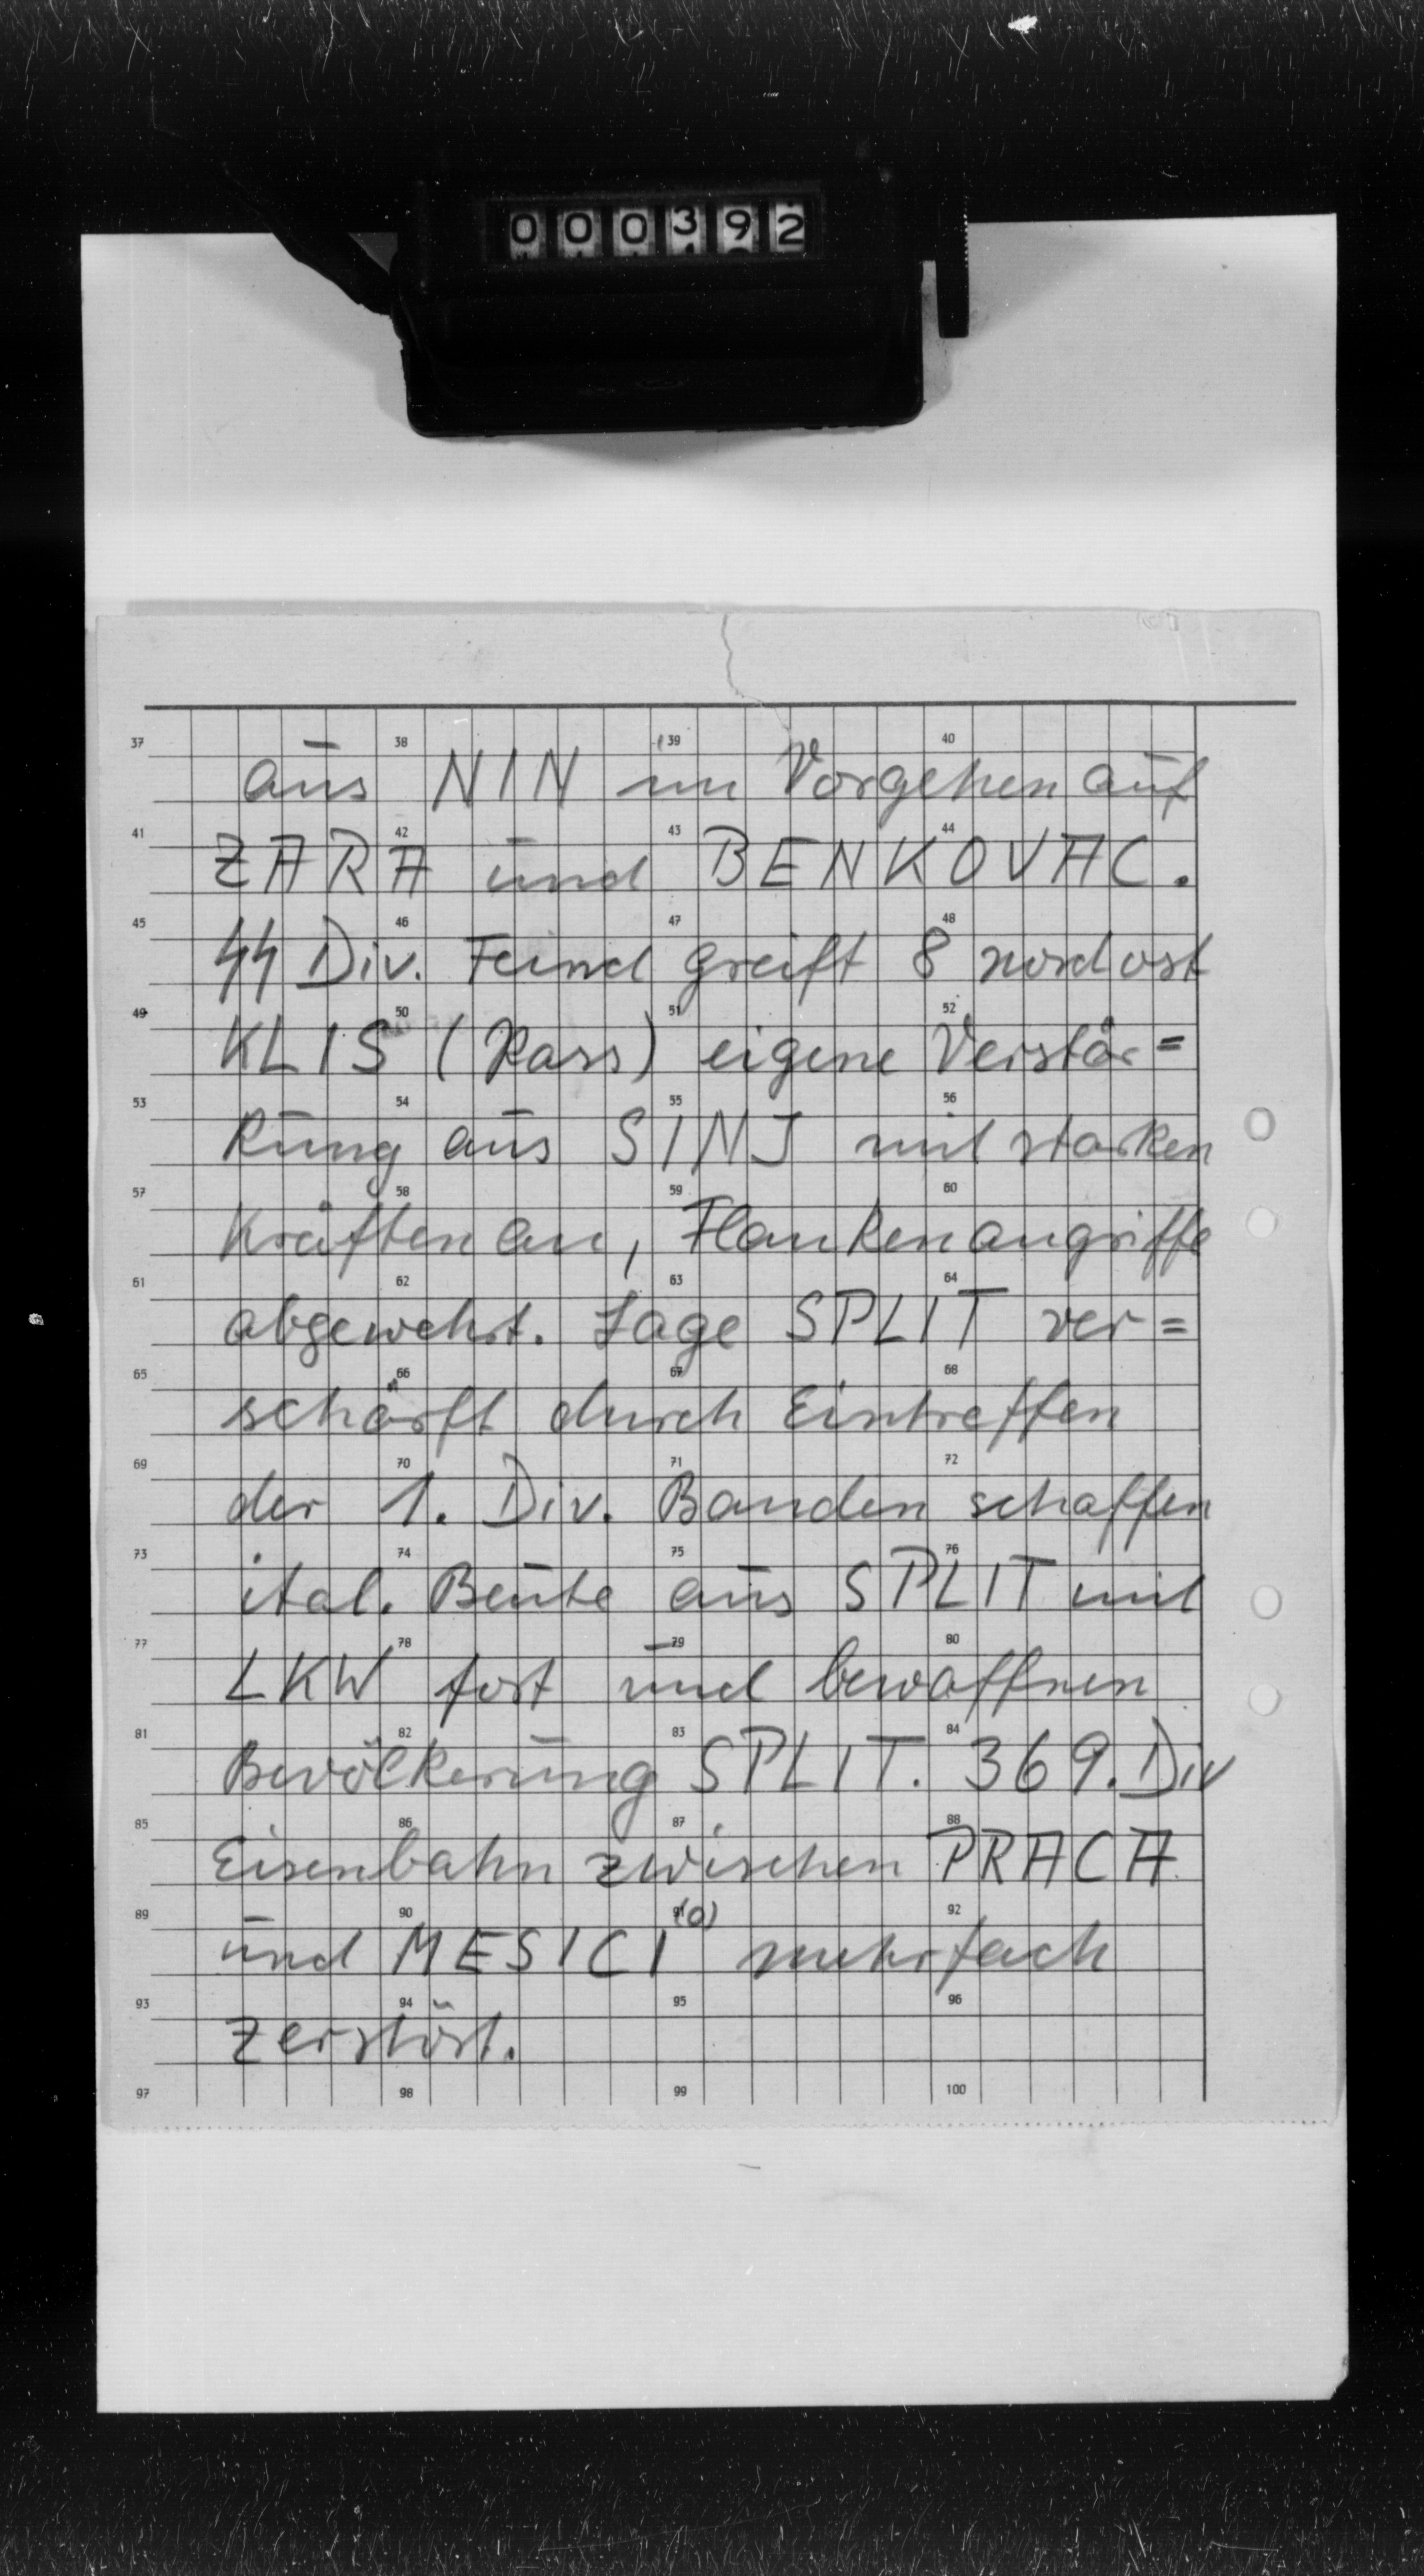 000392
37 38 39 40
aus NIN im Vorgehen auf
41 42 43 44
ZARA und BENKOVAC.
45 46 47 48
SS Div. Feind greift 8 nordost
49 50 51 52
KLIS (Pass) eigene Verstär=
53 54 55 56
kung aus SINJ mit starken
57 58 59 60
Kräften an, Flankenangriffe
61 62 63 64
abgewehrt. Lage SPLIT ver=
65 66 67 68
schärft durch Eintreffen
69 70 71 72
der 1. Div. Banden schaffen
73 74 75 76
ital. Beute aus SPLIT mit
77 78 79 80
LKW fort und bewaffnen
81 82 83 84
Bevölkerung SPLIT. 369. Div
85 86 87 88
Eisenbahn zwischen PRACA
89 90 91 (a) 92
und MESICI mehrfach
93 94 95 96
zerstört.
97 98 99 100